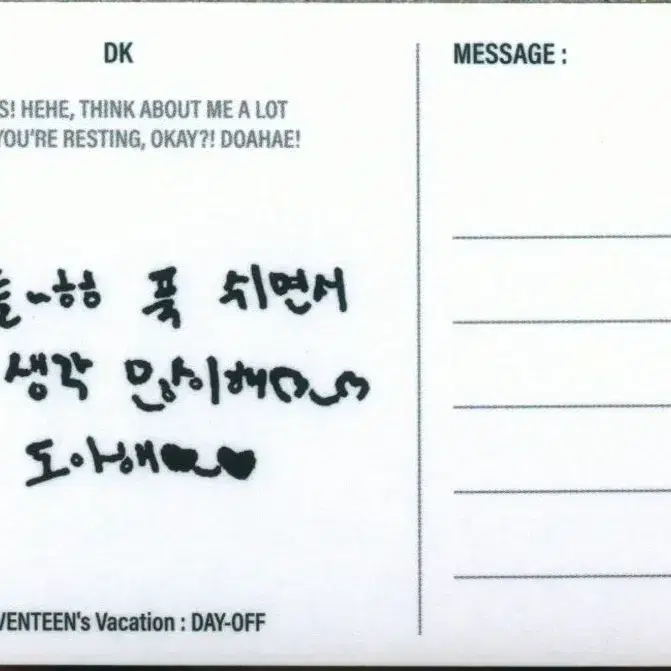 DK
S! HEHE, THINK ABOUT ME A LOT
YOU'RE RESTING, OKAY?! DOAHAE!
들~헝 푹 쉬면서
생각 많이해
도아해♥~♥
VENTEEN's Vacation : DAY-OFF
MESSAGE :